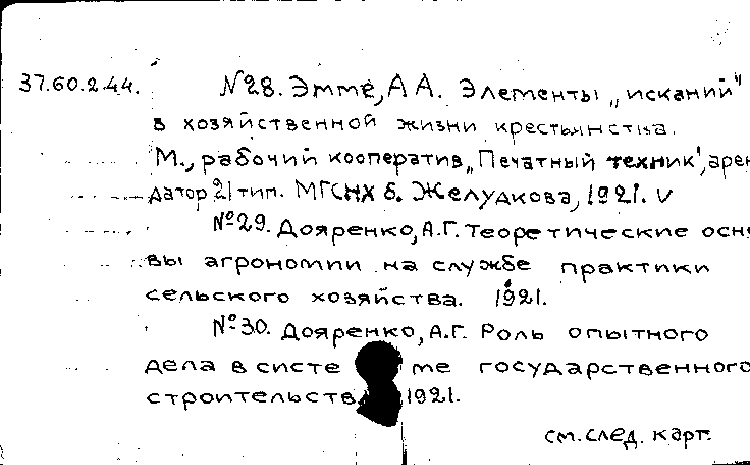 37.60.2.44. №28. Эмме, А А. Элементы „исканий"
в хозяйственной жизни крестьянства.
М., рабочий кооператив „Печатный техник", арен
датор 21 тип. МГСНХ б. Желудкова, 1921. V
№29. Дояренко, А.Г. Теоретические осно
вы агрономии на службе практики
сельского хозяйства. 1921.
№30. Дояренко, А.Г. Роль опытного
дела в систе ме государственного
строительств 1921.
см. след. карт.